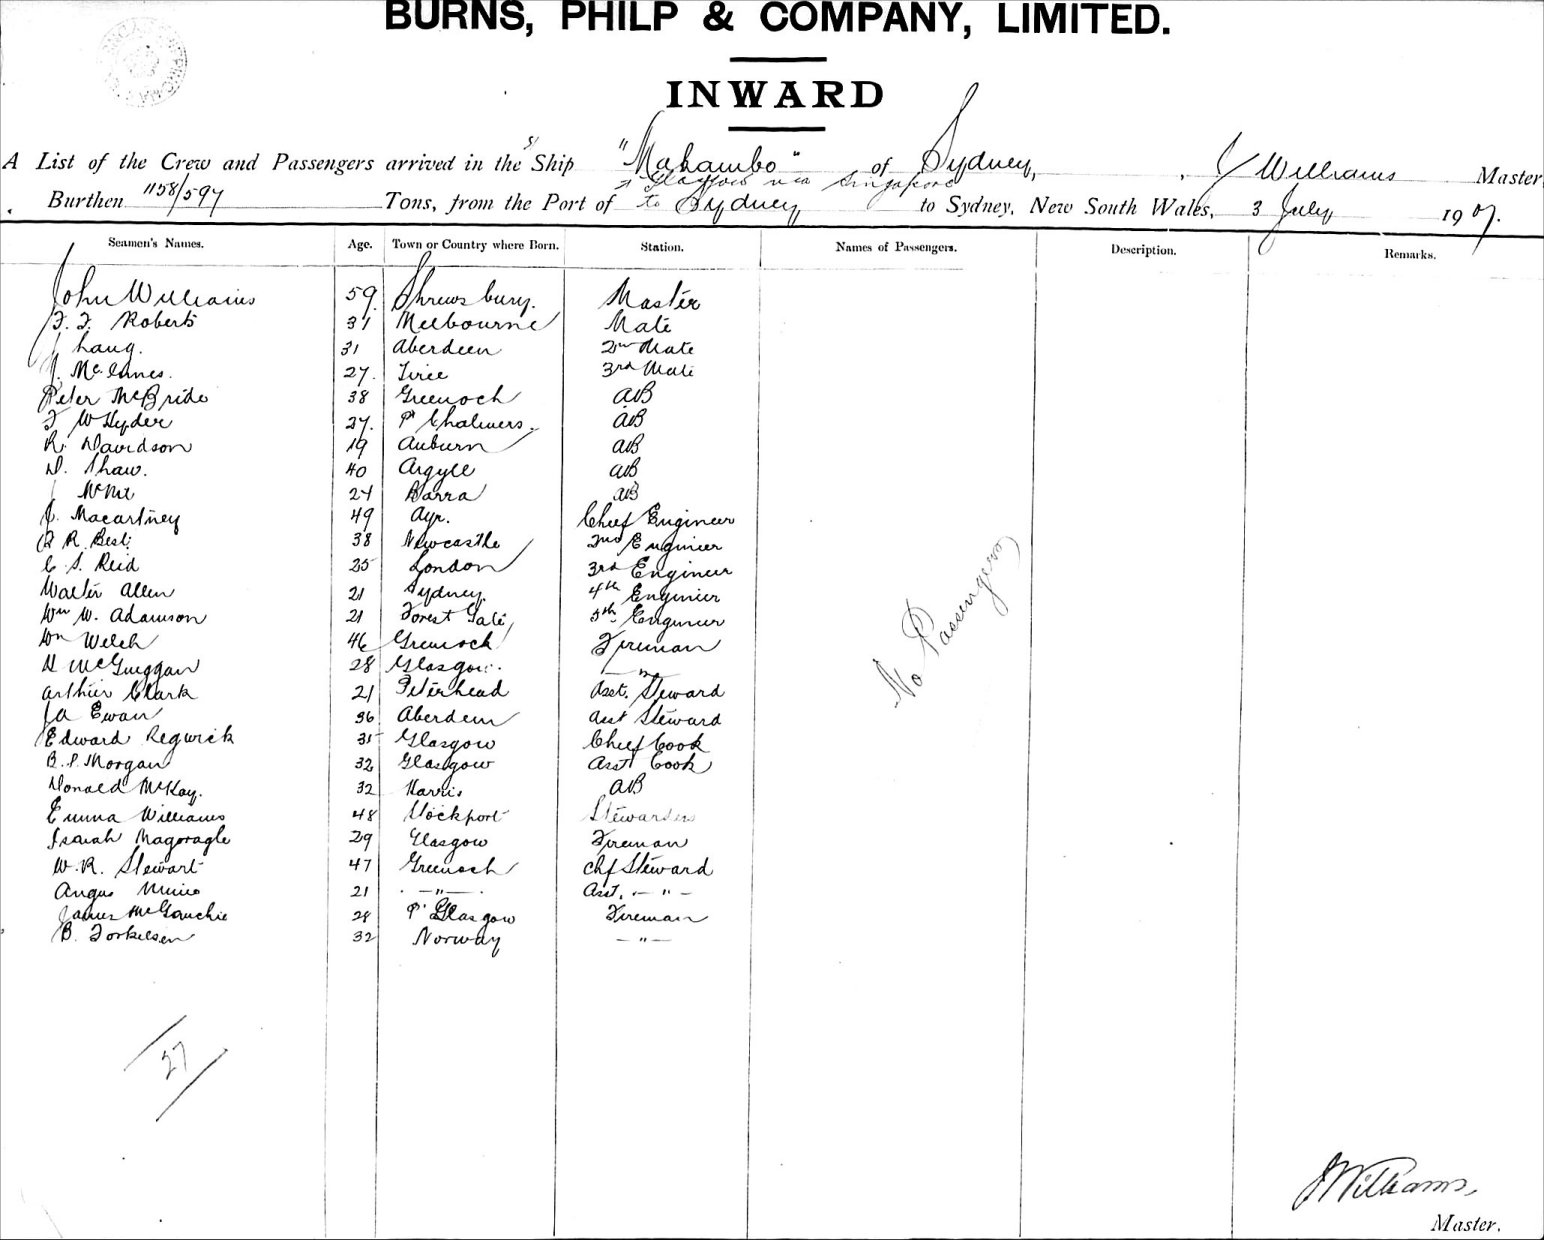 BURNS, PHILP & COMPANY, LIMITED.
INWARD
A List of the Crew and Passengers arrived in the S/ Ship "Mahambo" of Sydney, J Williams Master
Burthen 1158/597 Tons, from the Port of Glasgow via Singapore to Sydney to Sydney, New South Wales, 3 July 1907.
Seamen's Names. Age. Town or Country where Born. Station. Names of Passengers. Description. Remarks.
John Williams 59 Shrewsbury. Master
F. F. Roberts 31 Melbourne Mate
J Laug. 31 Aberdeen 2nd Mate
J. McInnes. 27. Tiree 3rd Mate
Peter McBride 38 Greenock AB
F W Hyder 27. Pt Chalmers. AB
R. Davidson 19 Auburn AB
D. Shaw. 40 Argyle AB
J 24 Barra AB
J. Macartney 49 Ayr. Chief Engineer
R. Best. 38 Newcastle 2nd Engineer
C S. Reid 25 London 3rd Engineer
Walter Allen 21 Sydney. 4th Engineer
Wm W. Adamson 21 Forest Gate, 5th Engineer
Wm Welch 46 Greenock Fireman
H McGuiggan 28 Glasgow. — " —
Arthur Clark 21 Peterhead Asst. Steward
Ja Ewan 36 Aberdeen Asst Steward
Edward Regwick 35 Glasgow Chief Cook
B. P. Morgan 32 Glasgow Asst Cook
Donald McKay. 32 Harris AB
Emma Williams 48 Stockport Stewardess
Isaiah Magoragle 29 Glasgow Fireman
W. R. Stewart 47 Greenock Chf Steward
Angus Munro 21 — " — Asst. — " —
James McGouchie 28 Pt Glasgow Fireman
B. Torkelsen 32 Norway — " —
No Passengers
27
J Williams,
Master.